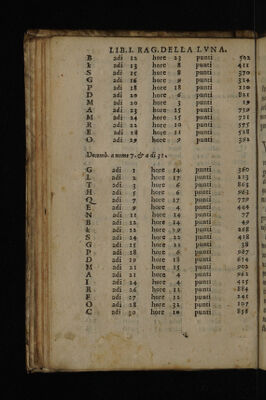 LIB. I. RAG. DELLA LVNA.
B adi 12 hore 23 punti 502
k adi 13 hore 8 punti 411
S adi 15 hore 8 punti 370
G adi 16 hore 9 punti 324
P adi 18 hore 18 punti 110
D adi 20 hore 6 punti 821
M adi 20 hore 3 punti 19
A adi 23 hore 15 punti 759
M adi 24 hore 15 punti 721
R adi 22 hore 10 punti 575
E adi 18 hore 11 punti 528
O. adi 29 hore 9 punti 392
Decemb. a nome 7. & a di 31.
G adi 1 hore 14 punti 360
L adi 2 hore 17 punti 213
T adi 3 hore 6 punti 803
H adi 5 hore 6 punti 963
Q adi 7 hore 17 punti 770
E adi 9 hore 4 punti 404
N adi 11 hore 14 punti 77
B adi 12 hore 14 punti 49
k adi hore 9 punti 268
S adi 14 hore 22 punti 418
G adi 15 hore 22 punti 38
P adi 18 hore 6 punti 987
D adi 19 hore 18 punti 654
M adi 21 hore 15 punti 902
A adi 21 hore 4 punti 962
I adi 24 hore 4 punti 425
R adi 26 hore 11 punti 884
F adi 27 hore 12 punti 245
O adi 28 hore punti 107
C adi 30 hore 10 punti 856